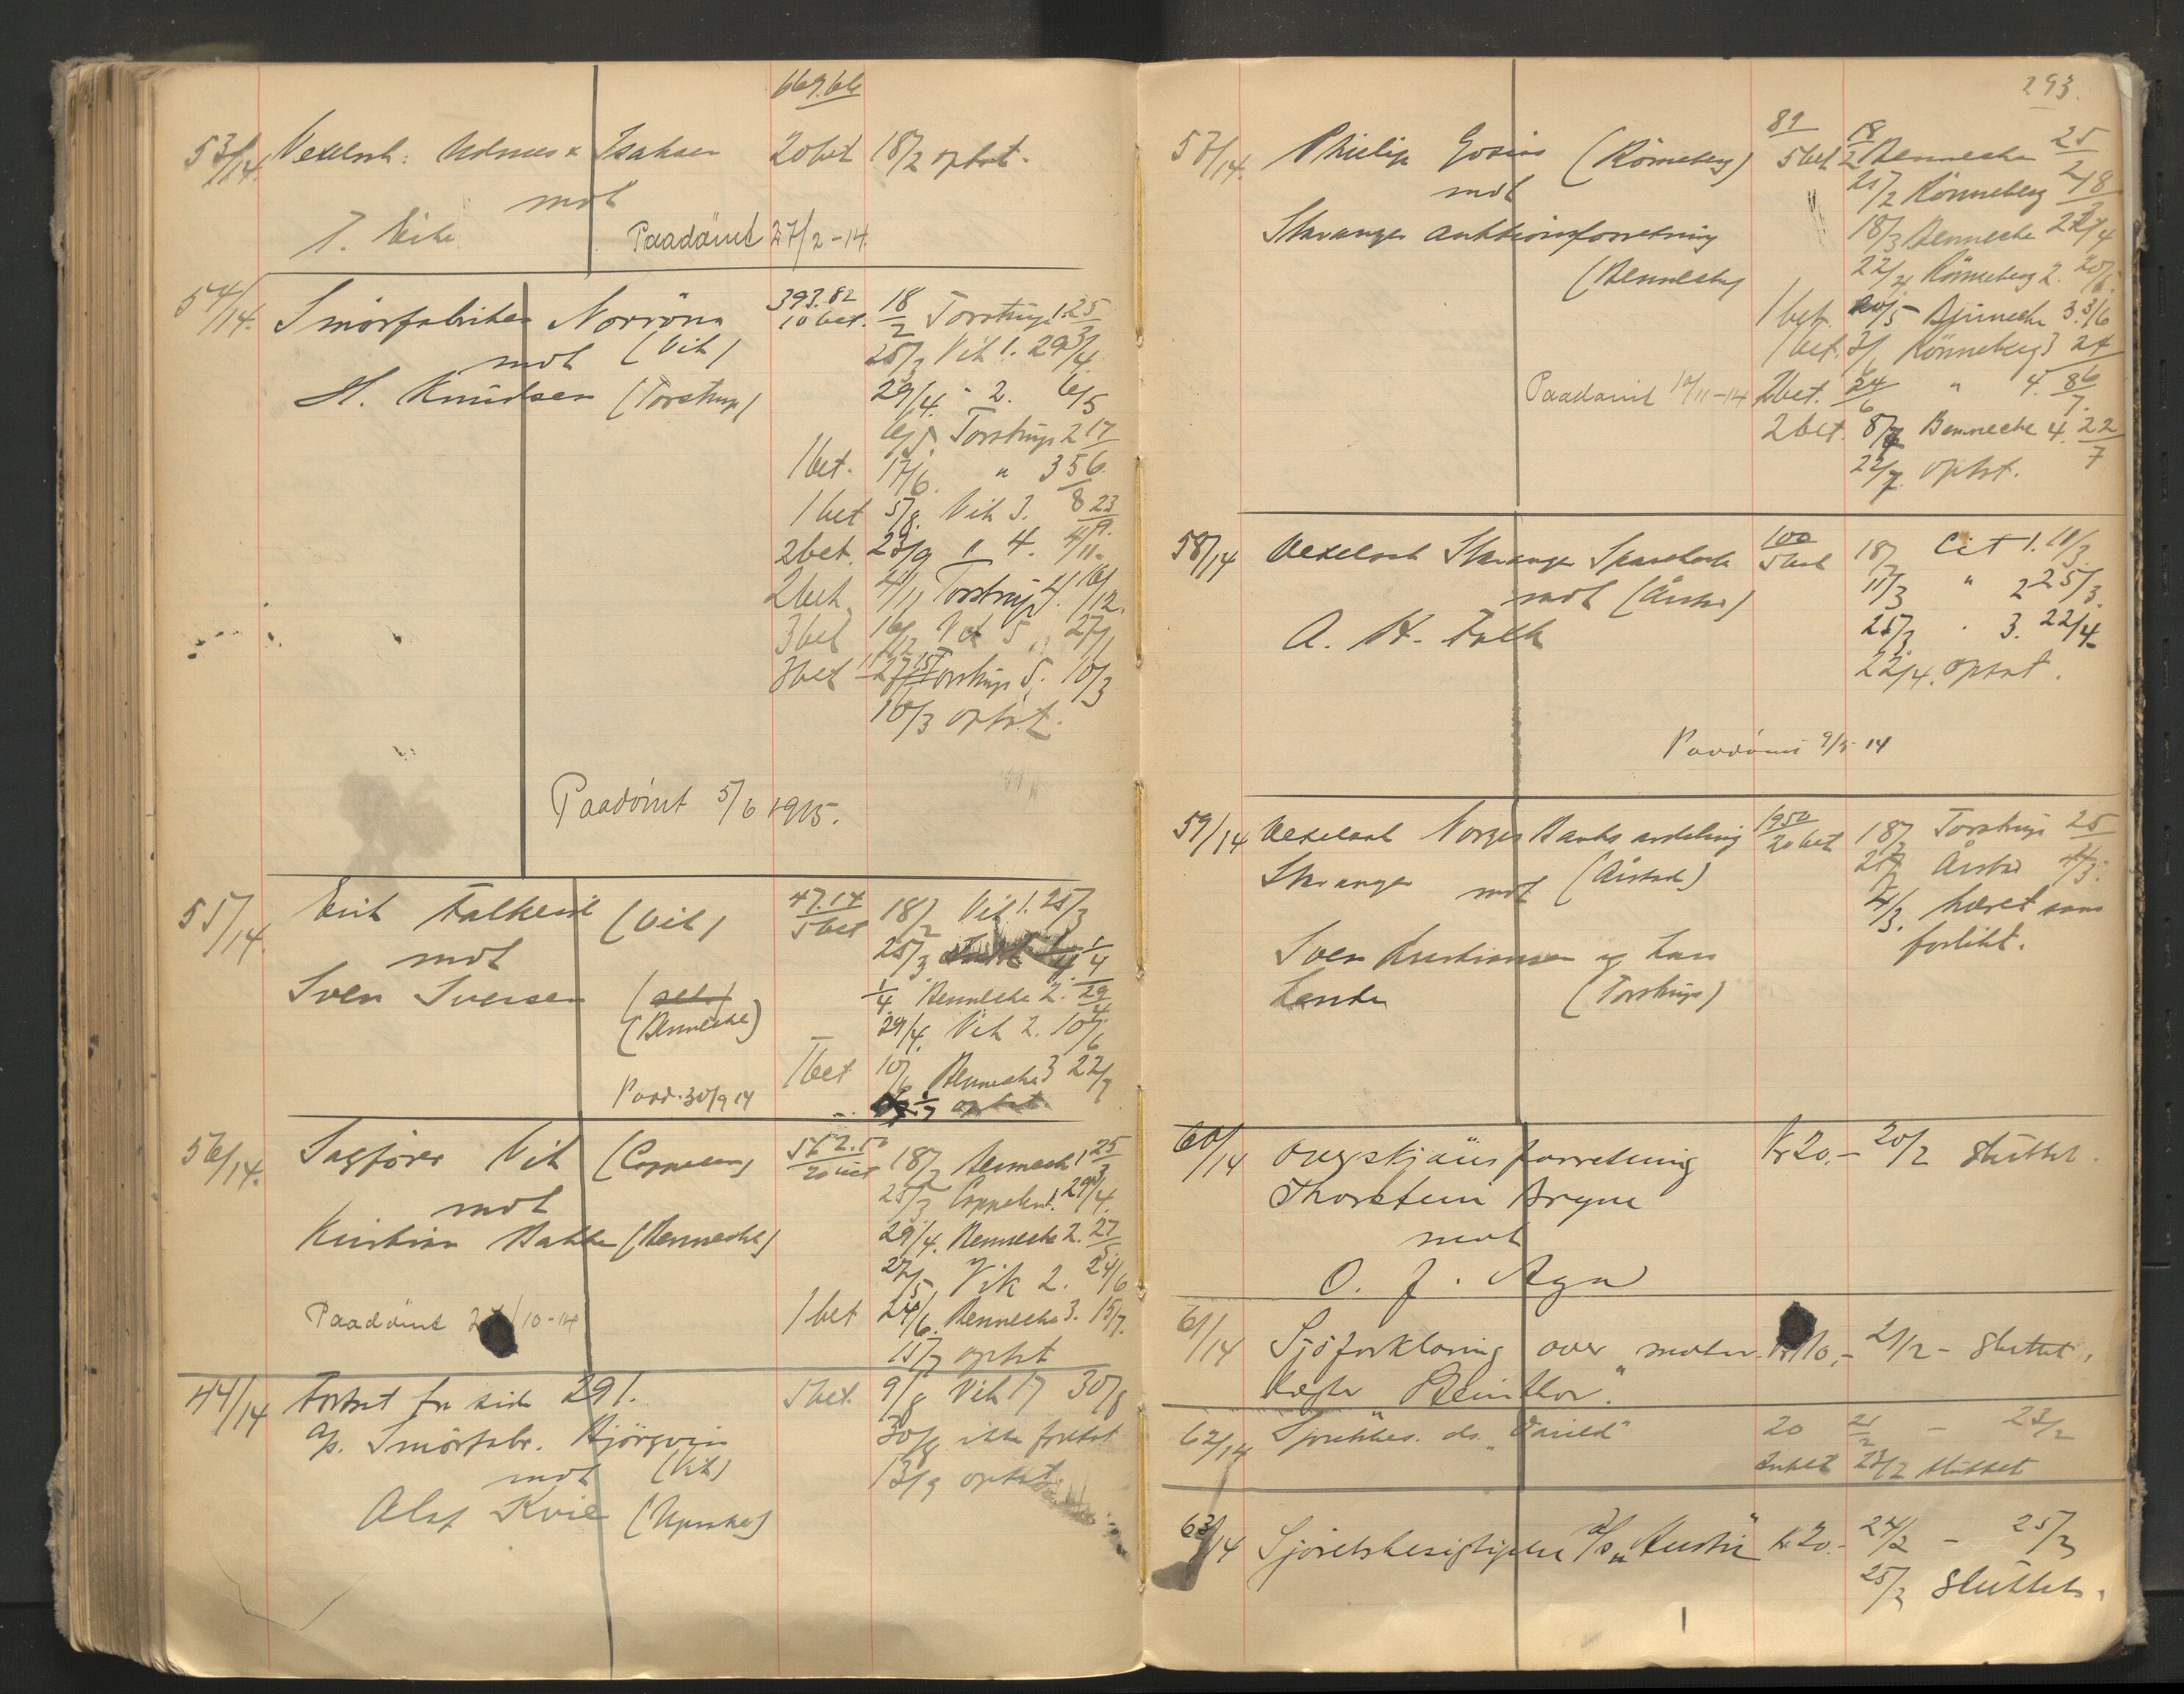 669.66
53/14. Vexelsak: Udnæs & Isaksen 20 bet 18/2 optat.
mot
J. Vike Paadömt 27/2-14
54/14. Smörfabriken Norröna 393.82 10 bet. 18/2 Torstrup 1. 25/3
mot (Vik) 25/3 Vik 1. 29/4
H. Knudsen (Torstrup) 29/4. " 2. 6/5
6/5 Torstrup 2 17/6
1 bet. 17/6. " 3 5/8
1 bet 5/8. Vik 3. 23/9.
2 bet. 23/9 " 4. 4/11.
2 bet. 4/11 Torstrup 4. 16/12.
3 bet 16/12 Vik 5 27/1
3 bet 27/1 Torstrup 5. 10/3
10/3 optat.
Paadömt 5/6 1915.
55/14. Erik Falkeid (Vik) 47.14 5 bet 18/2 Vik 1. 25/3
mot 25/3 1/4
Sven Sversen (selv) 1/4 Bennecke 2. 29/4
(Bennecke) 29/4. Vik 2. 10/6
1 bet 10/6 Bennecke 3 22/7
Paad. 30/9 14 optat.
56/14. Sagförer Vik (Coppelen) 562.50 20 bet 18/2 Bennecke 1 25/3
mot 25/3 Coppelen 1. 29/4.
Kristian Bakke (Bennecke) 29/4. Bennecke 2. 27/5
27/5 Vik 2. 24/6
1 bet 24/6. Bennecke 3. 15/7.
Paadömt /10-14 15/7 optat
44/14 Fortsat fra side 291. 5 bet. 9/8 Vik 17 30/8
A/s. Smörfabr. Björgvin 30/8 ikke fortsat
mot (Vik) 13/9 optat
Olaf Kvie
293.
57/14. Philip Gosias (Rönneberg) 89 5 bet 18/2 Bennecke 25/2
mot 25/2 Rönneberg 18/3
Stavanger Auktionsforretning 18/3 Bennecke 22/4
(Bennecke) 22/4 Rönneberg 2. 20/5.
1 bet. 20/5 Bennecke 3. 3/6
1 bet. 3/6 Rönneberg 3 24/6
Paadömt 10/11-14 2 bet. 24/6 " 4. 8/7.
2 bet. 8/7 Bennecke 4. 22/7
22/7. optat.
58/14 Vexelsak Stavanger Sparekasse 100 5 bet 18/2 Cit 1. 11/3.
mot (Årstad) 11/3 " 2 25/3.
A. H. Falk 25/3. " 3. 22/4.
22/4. optat.
Paadömt 9/5-14
59/14 Vexelsak Norges Banks avdeling 1950 20 bet 18/2 Torstrup 25/2
Stavanger mot (Årstad) 25/2 Årstad 4/3.
4/3. hævet som
forlikt.
Sven Kristiansen og Lars
Lende (Torstrup)
60/14 Overskjönsforretning Kr 20.- 20/2 Sluttet.
Thorstein Bryne
mot
O. J. Aga
61/14 Sjöforklaring over motor- Kr 10.- 21/2 - Sluttet.
kogte "Reinthor."
62/14 ds. "Varild" 20 21/2 - 23/2
Inbet 23/2 sluttet
63/14 Sjöretsbesigtigelse D/S "Austri" Kr 20.- 24/2 - 25/2
25/2 Sluttet.